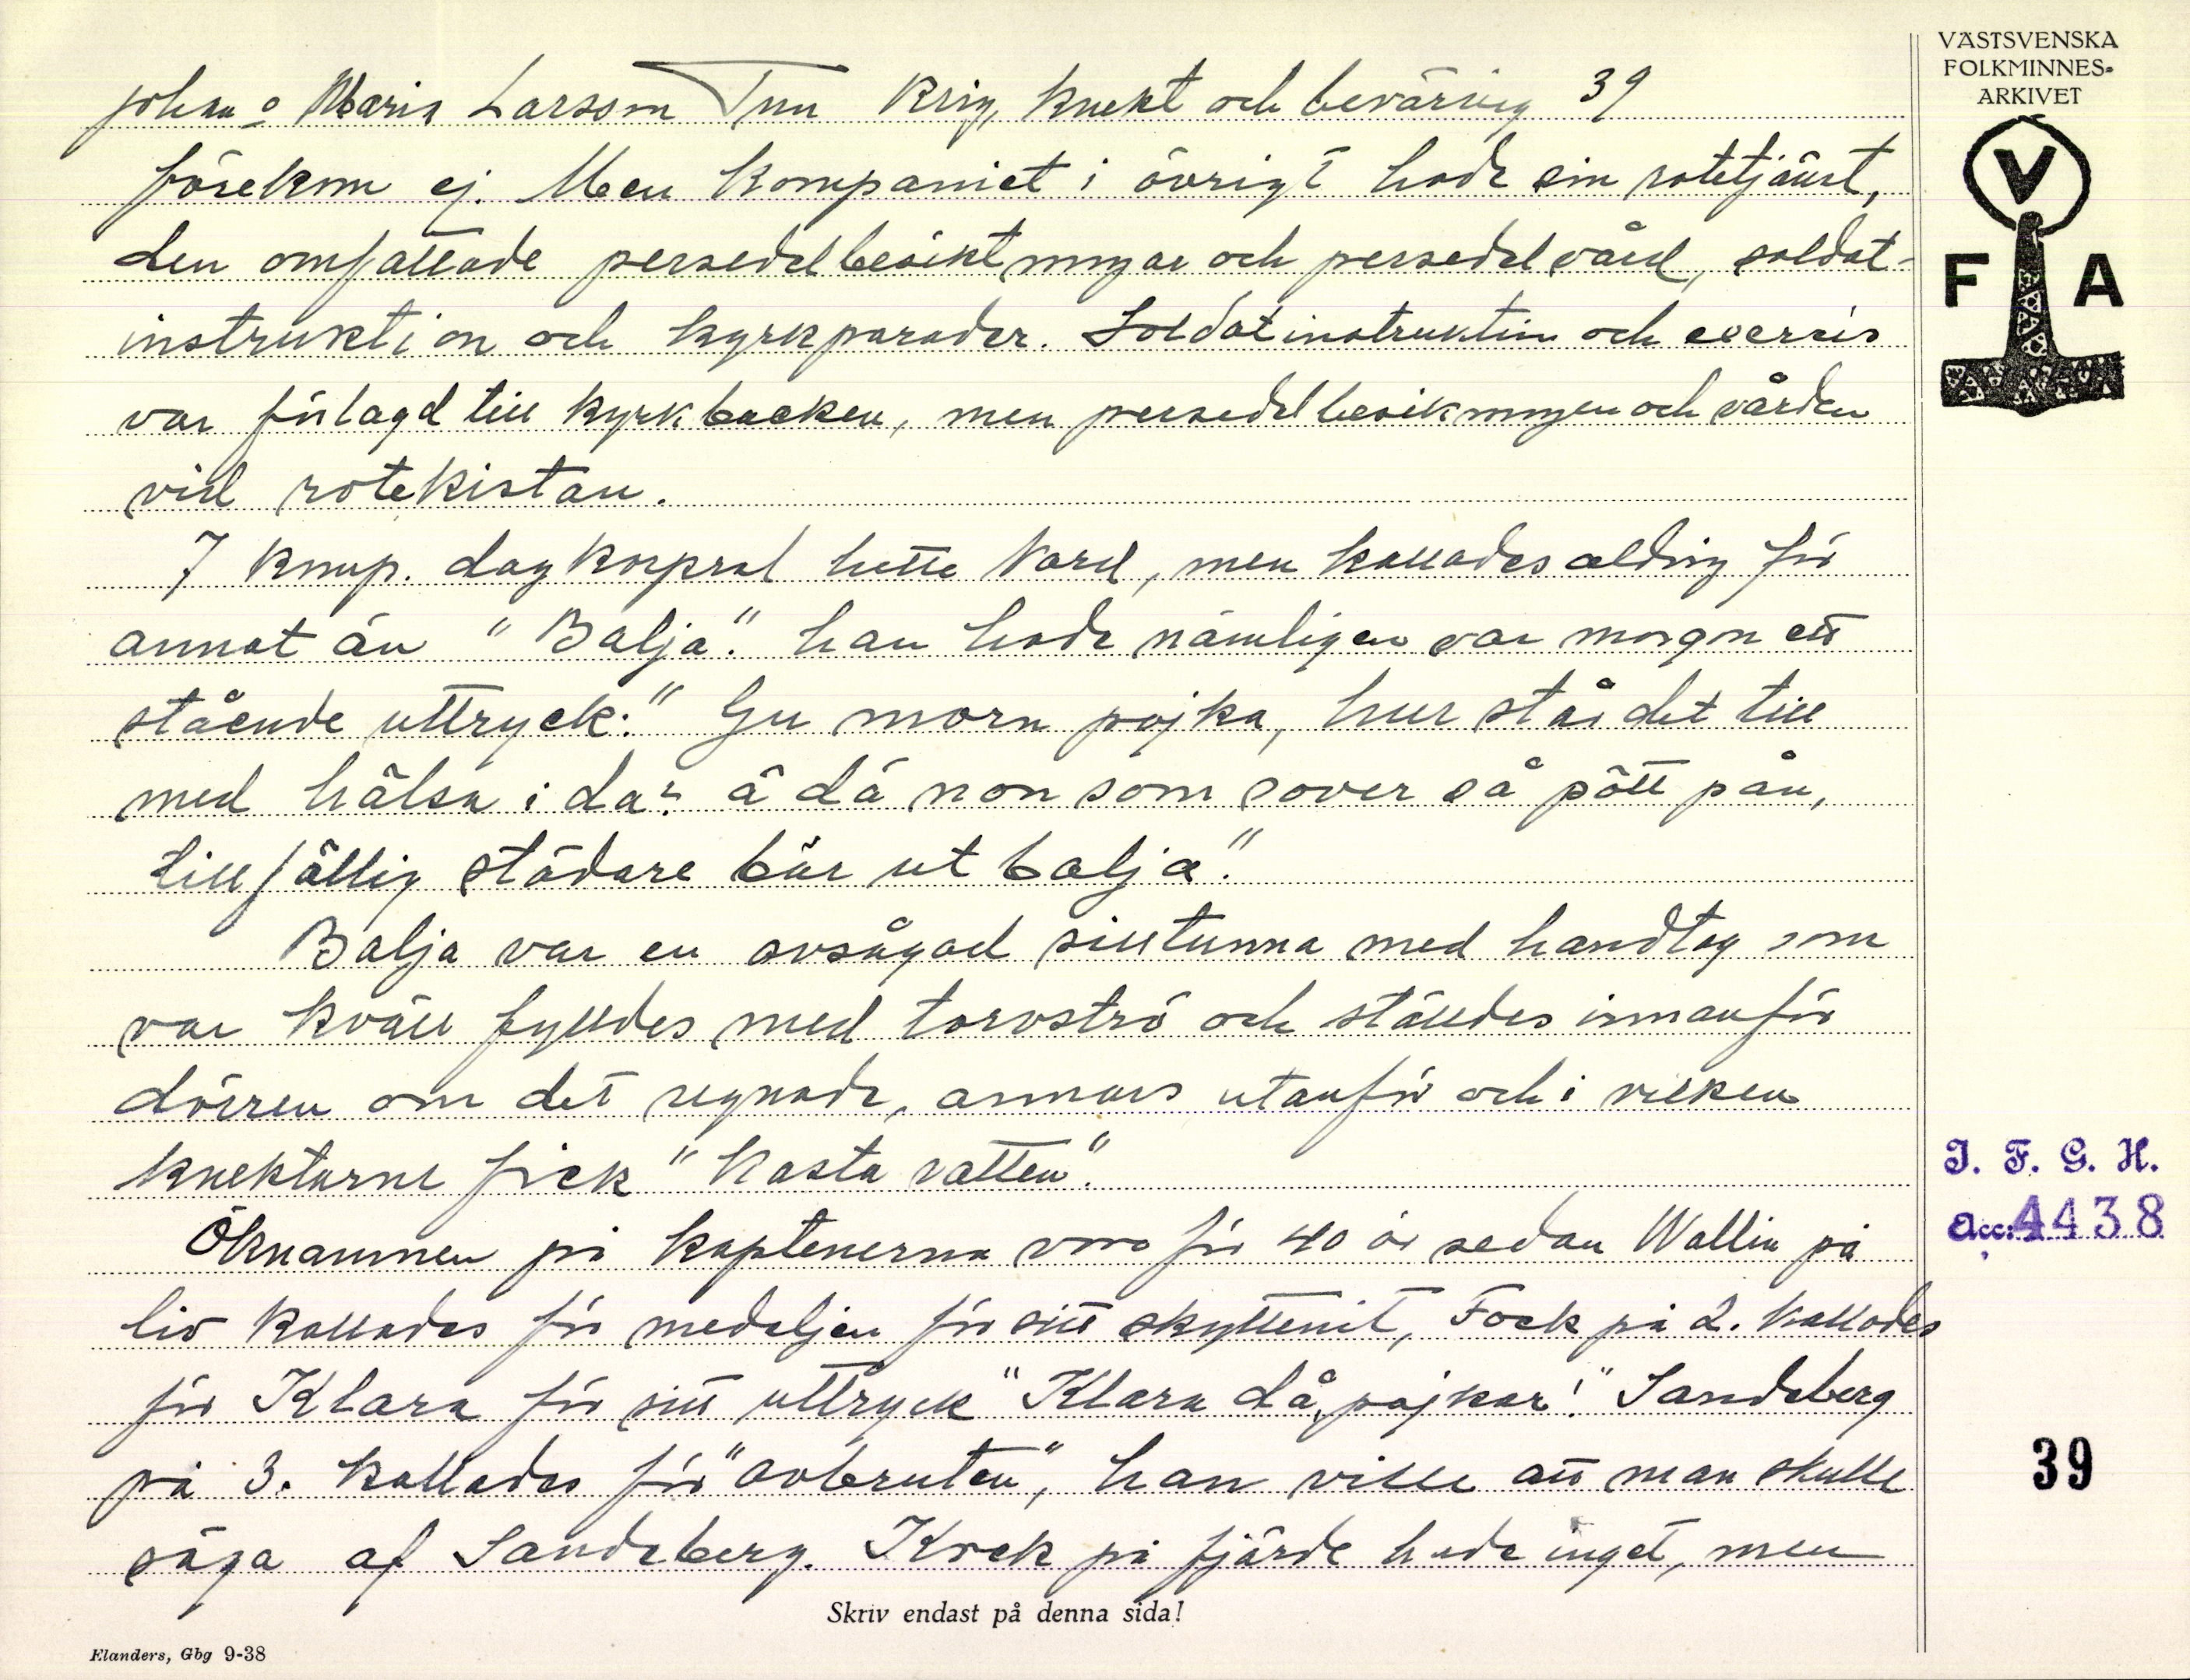 VÄSTSVENSKA
FOLKMINNES-
ARKIVET
V
F A
Johan o Maria Larsson Tun Krig, knekt och beväring 39
förekom ej. Men kompaniet i övrigt hade sin rotetjänst,
den omfattade persedelbesiktningar och persedelvård, soldat-
instruktion och kyrkparader. Soldatinstruktion och exercis
var förlagd till kyrkbacken, men persedelbesikningen och vården
vid rotekistan.
7 komp. dagkorpral hette Nord, men kallades aldrig för
annat än "Balja". han hade nämligen var morgon ett
stående uttryck: "Gu morn pojka, hur står det till
med hälsa i da? ä dä non som sover så pött pån,
tillfällig städare bär ut balja".
Balja var en avsågad silltunna med handtag som
var kväll fylldes med torvströ och ställdes innanför
dörren om det regnade, annars utanför och i vilken
knektarne fick "kasta vatten".
Öknamnen på kaptenerna voro för 40 år sedan Wallin på
liv kallades för medaljen för sitt skyttenit, Fock på 2. kallades
för Klara för sitt uttryck "Klara då, pojkar!" Sandeberg
på 3. kallades för "avbruten", han ville att man skulle
säga af Sandeberg. Krok på fjärde hade inget, men
I. F. G. H.
Acc: 4438
39
Skriv endast på denna sida!
Elanders, Gbg 9-38